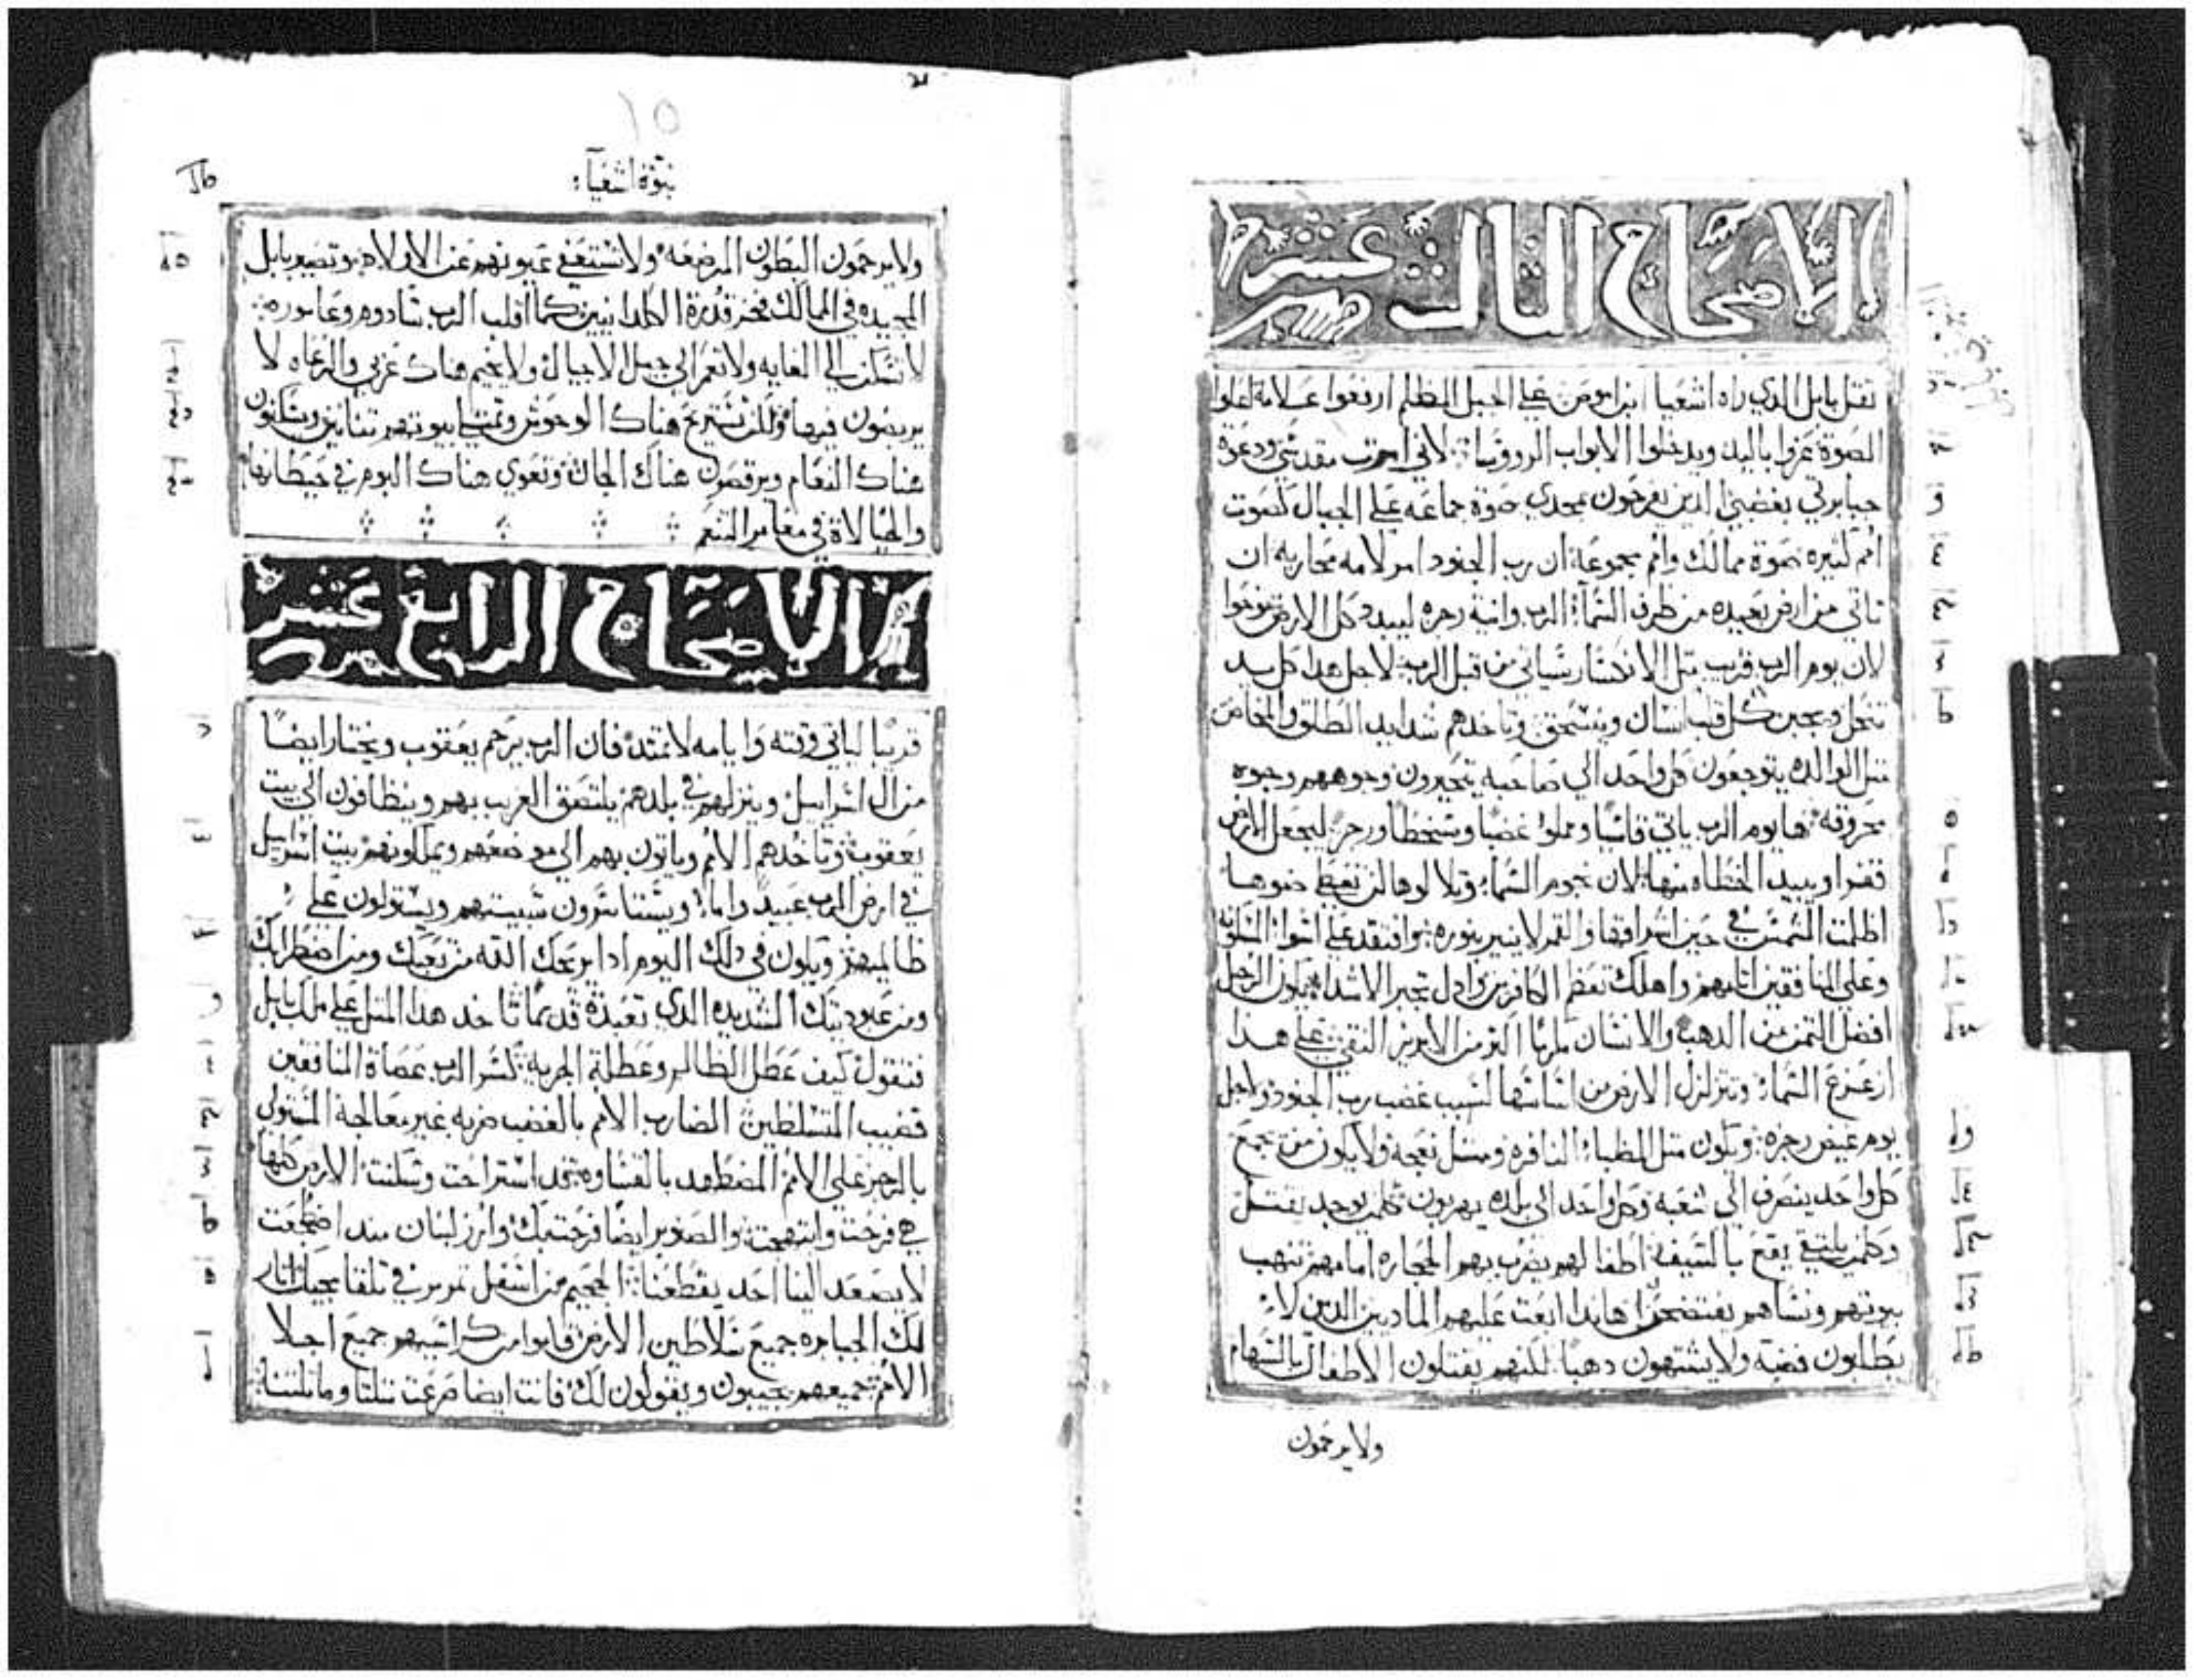 الاصحاح الثالث عشر
ثقل بابل الذي راه اشعيا ابن اموص علي الجبل المظلم ارفعوا علامة اعلوا
الصوة عزوا باليد ويدخلوا الابواب الرووسا لاني امرت مقدسي ودعوة
جبابرتي بغضبي الذين يفرحون بمجدي صوة جماعه علي الجبال كصوت
امم كثيره صوة ممالك وامم مجموعة ان رب الجنود امر لامه محاربه ان
تاتي من ارض بعيده من طرف السما الرب وانية رجزه ليبيد كل الارض نوحوا
لان يوم الرب قريب مثل الانكسار سياتي من قبل الرب لاجل هدا كل يد
تنحل ويجبن كل قلب انسان وينسحق وتاخدهم شدايد الطلق والمخاض
مثل الوالده يتوجعون كل واحد الي صاحبه يتحيرون وجوههم وجوه
محروقه ها يوم الرب ياتي قاسيا ومملوا غضبا وسخطا ورجز ليجعل الارض
قفرا ويبيد الخطاه منها لان نجوم السما وتلالوها لن تعطي ضوها
اظلمت الشمس في حين اشراقها والقمر لا ينير بنوره وافتقد علي اسوا المسكونه
وعلي المنافقين اثامهم واهلك تعظم الكافرين وادل تجبر الاشدا يكون الرجل
افضل الثمن من الدهب والانسان يكرم اكثر من الابريز النقي علي هدا
ازعزع السما وتتزلزل الارض من اساسها لسبب غضب رب الجنود ولاجل
يوم غيض رجزه ويكون مثل الظبا النافره ومثل نعجه ولا يكون من يجمع
كل واحد ينصرف الي شعبه وكل واحد الي بلده يهربون كلمن يوجد يقتل
وكلمن يلتقي يقع بالسيف اطفالهم يضرب بهم الحجاره امامهم تنهب
بيوتهم ونساهم يفتضحن هاندا ابعث عليهم المادين الدين لا
يطلبون فضة ولا يشتهون دهبا لكنهم يقتلون الاطفال بالسهام
ولا يرحمون
١٥
نبوة اشعيا
ولا يرحمون البطون المرضعه ولا تستعفي عيونهم عن الاولاد وتصير بابل
المجيده في الممالك فخر قدرة الكلدانيين كما اقلب الرب سادوم وعاموره
لا تسكن الي الغايه ولا تعمر الي جيل الاجيال ولا يخيم هناك عربي والرعاه لا
يربضون فيها ولكن تستريح هناك الوحوش وتمتلي بيوتهم تنانين ويسكنون
هناك النعام ويرقصون هناك الجان وتعوي هناك البوم في حيطانها
والخيالاة في مغاير التنعم
الاصحاح الرابع عشر
قريبا لياتي وقته وايامه لا تمتد فان الرب يرحم يعقوب ويختار ايضا
من ال اسراييل وينزلهم في بلدهم يلتصق الغريب بهم وينظافون الي بيت
يعقوب وتاخدهم الامم وياتون بهم الي موضعهم ويملكونهم بيت اسراييل
في ارض الرب عبيد واما ويستاسرون سبيتهم ويستولون علي
ظالميهم ويكون في دلك اليوم ادا يريحك الله من تعبك ومن اضطرابك
ومن عبوديتك الشديده الدي تعبدة قديما تاخد هدا المثل علي ملك بابل
فتقول كيف عطل الظالم وعطلة الجزيه كسر الرب عصاة المنافقين
قضيب المتسلطين الضارب الامم بالغضب ضربه غير معالجة المستولي
بالرجز علي الامم المضطهد بالقساوه استراحت وسكنت الارض كلها
هي فرحت وابتهجت والصنوبر ايضا فرحت بك وارز لبنان مند اضطجعت
لا يصعد الينا احد يقطعنا الجحيم من اسفل تمرمر في تلقا مجيك اثار
لك الجبابره جميع سلاطين الارض قاموا من كراسيهم جميع اجلا
الامم جميعهم يجيبون ويقولون لك فانت ايضا ضرعت مثلنا وماثلتنا